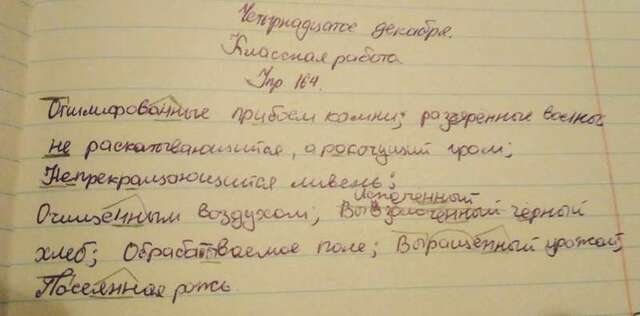 Четырнадцатое декабря.
Классная работа.
Упр 164.
Отшлифованные прибоем камни; разъяренные волны;
не раскатывающийся, а рокочущий гром;
Непрекращающийся ливень;
испеченный
Очищенным воздухом; чёрный
хлеб; Обрабатываемое поле; Выращенный урожай;
Посеянная рожь